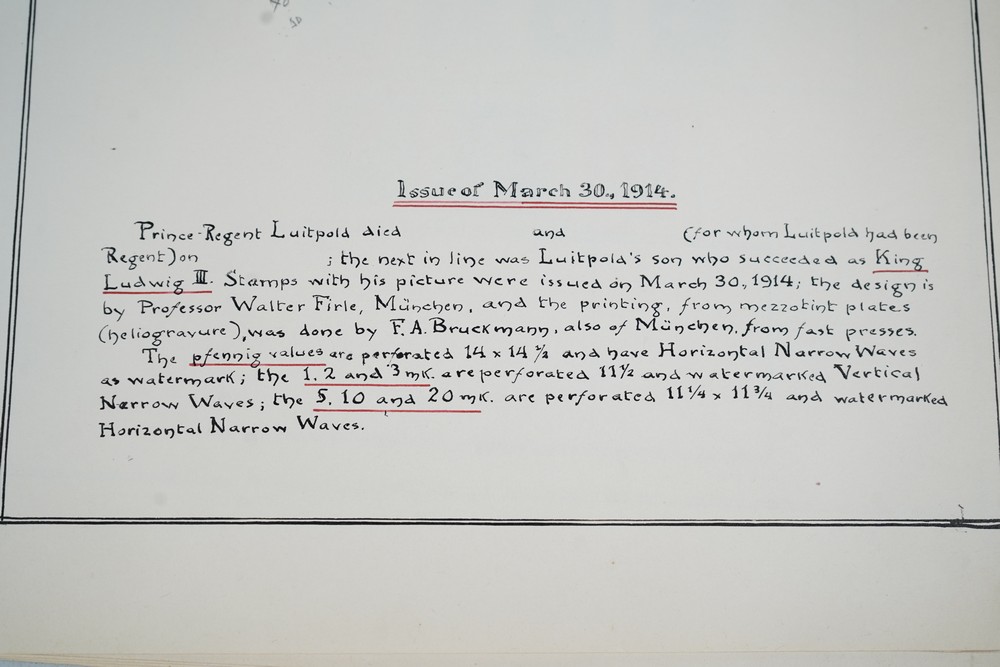 Issue of March 30., 1914.
Prince-Regent Luitpold died and (for whom Luitpold had been
Regent) on ; the next in line was Luitpold's son who succeeded as King
Ludwig III. Stamps with his picture were issued on March 30, 1914; the design is
by Professor Walter Firle, München, and the printing, from mezzotint plates
(heliogravure), was done by F.A. Bruckmann, also of München, from fast presses.
The pfennig values are perforated 14 x 14 ½ and have Horizontal Narrow Waves
as watermark; the 1, 2 and 3 mK. are perforated 11½ and watermarked Vertical
Narrow Waves; the 5, 10 and 20 mK. are perforated 11¼ x 11¾ and watermarked
Horizontal Narrow Waves.